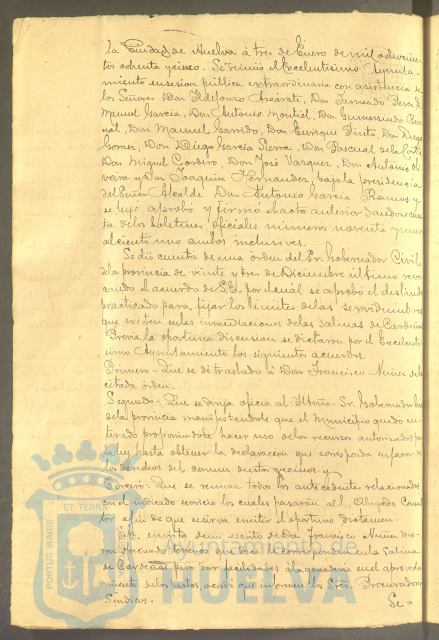 la Ciudad de Huelva á tres de Enero de mil ochocien
tos ochenta y cinco. Se reunió el Excelentísimo Ayunta
miento en sesión pública extraordinaria con asistencia de
los Señores Don Ildefonso Azcárate, Don Fernando Perez, D.
Manuel Garcia, Don Antonio Montiel, Don Gumersindo Ber
nat, Don Manuel Garrido, Don Enrique Pinto, Don Diego
Gomez, Don Diego Garcia Serra, Don Pascual de la Corte
Don Miguel Cordero, Don José Vazquez, Don Antonio Oli
veira y Don Joaquin Hernandez, bajo la presidencia
del Señor Alcalde Don Antonio Garcia Ramos y
se leyó aprobó y firmó el acta anterior dandose cuen
ta de los boletines oficiales número noventa y nueve
al ciento uno ambos inclusives.
Se dió cuenta de una órden del Sr. Gobernador Civil
de la provincia de veinte y tres de Diciembre último revo
cando el acuerdo de S.E. por el cual se aprobó el deslinde
practicado para fijar los límites de las servidumbres
que existen en las inmediaciones de las salinas de Cardeñas
Prévia la oportuna discusion se dictaron por el Excelent
isimo Ayuntamiento los siguientes acuerdos.
Primero. Que se dé traslado á Don Francisco Nuñez de la
citada órden.
Segundo. Que se dirija oficio al Iltmo. Sr. Gobernador
de la provincia manifestandole que el Municipio quedó en
terado proponiendose hacer uso de los recursos autorizados por
la ley hasta obtener la declaración que corresponda en favor de
los derechos del comun de estos vecinos; y
Tercero. Que se reunan todos los antecedentes relacionados
con el indicado servicio los cuales pasarán al Sr. Abogado Consul
tor á fin de que se sirva emitir el oportuno dictamen.
Dada cuenta de un escrito de Don Francisco Nuñez Mo
ofreciendo terrenos de los correspondientes á la Salina
de Cardeñas para dar facilidades á la ganaderia en el aprovecha
miento de los pastos, acordó que informen los Sres. Procuradores
Síndicos.
Se
PORTUS MARIS ET TERRAE
Ayuntamiento de
HUELVA